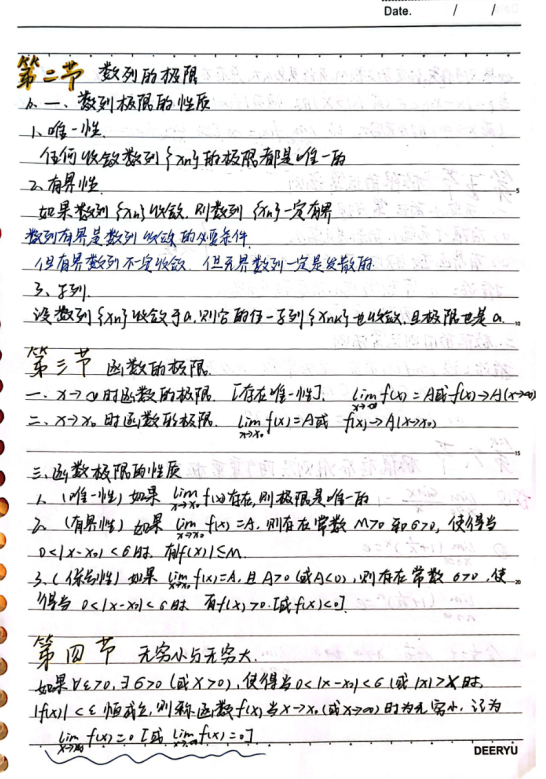 Date. / /
第二节 数列的极限
一、数列极限的性质
1、唯一性
任何收敛数列{xn}的极限都是唯一的
2、有界性
如果数列{xn}收敛,则数列{xn}一定有界
数列有界是数列收敛的必要条件
但有界数列不一定收敛,但无界数列一定是发散的
3、子列
设数列{xn}收敛于a,则它的任一子列{xnk}也收敛,且极限也是a.
第三节 函数的极限
一、x→∞时函数的极限.[存在唯一性]. lim x→∞ f(x)=A或f(x)→A(x→∞)
二、x→x₀时函数的极限. lim x→x₀ f(x)=A或 f(x)→A(x→x₀)
三、函数极限的性质
1、(唯一性)如果 lim x→x₀ f(x)存在,则极限是唯一的
2、(有界性)如果 lim x→x₀ f(x)=A,则存在常数M>0和δ>0,使得当
0<|x-x₀|<δ时,有|f(x)|≤M.
3、(保号性)如果 lim x→x₀ f(x)=A,且A>0(或A<0),则存在常数δ>0,使
得当0<|x-x₀|<δ时 有f(x)>0.[或f(x)<0].
第四节 无穷小与无穷大.
如果∀ε>0,∃δ>0(或X>0),使得当0<|x-x₀|<δ(或|x|>X)时,
|f(x)|<ε恒成立,则称函数f(x)当x→x₀(或x→∞)时为无穷小,记为
lim x→x₀ f(x)=0 [或 lim x→∞ f(x)=0]
DEERYU